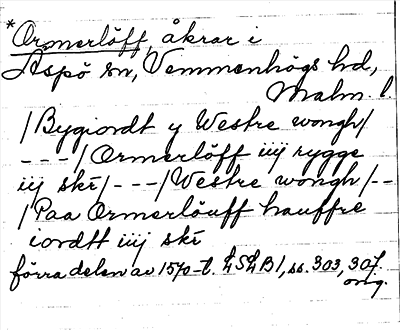 *Ormerlöff, åkrar i
Aspö sn, Vemmenhögs hd,
Malm. l.
/Bygiordt y Westre wongh/
---/Ormerlöff iiij rygge
iij skē/---/Westre wongh/--
/Paa Ormerlöuff hauffre
iordtt iiij skē
förra delen av 1570-t. LSLB1, ss. 303, 307.
orig.